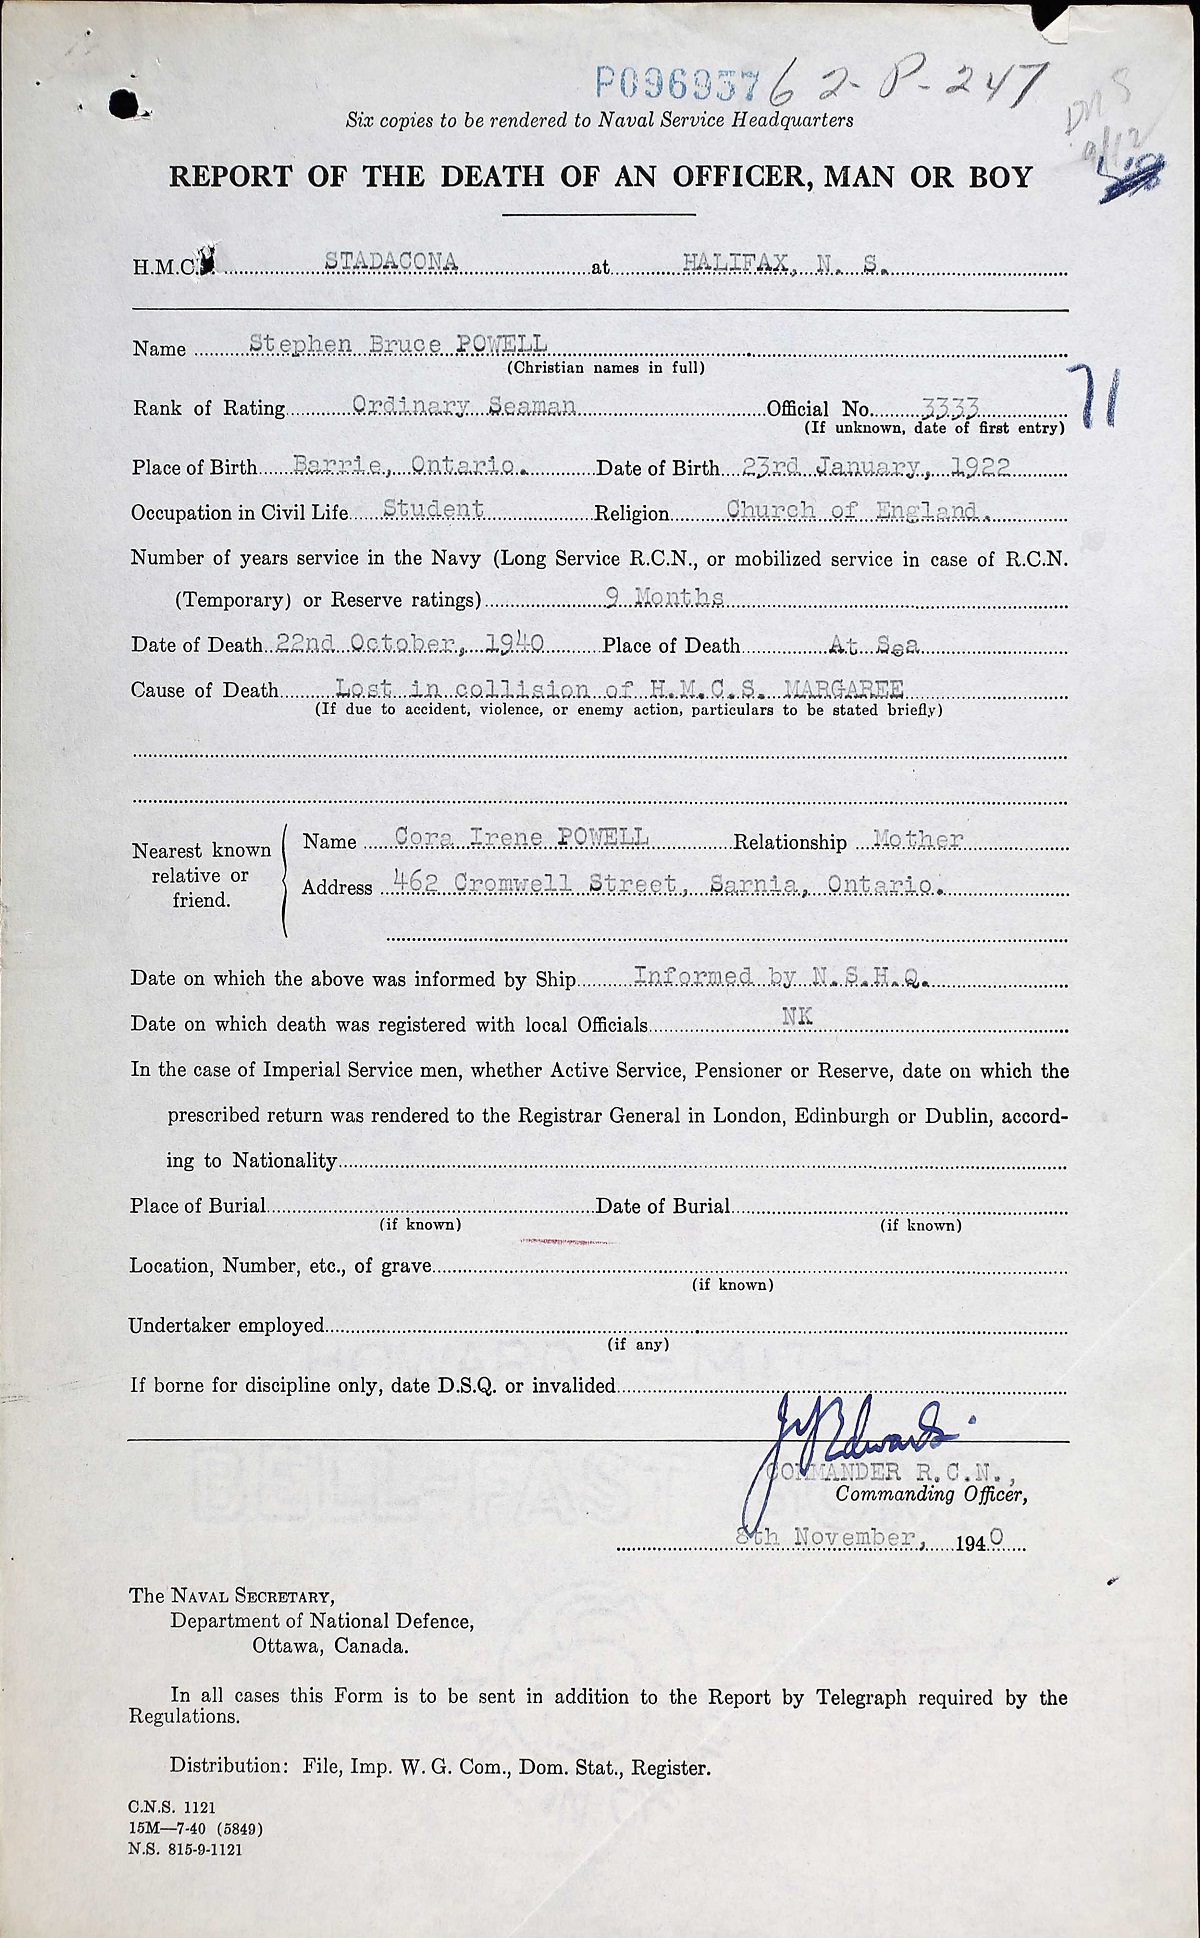 P096957 62-P-247
Six copies to be rendered to Naval Service Headquarters
REPORT OF THE DEATH OF AN OFFICER, MAN OR BOY
H.M.C. STADACONA at HALIFAX, N. S.
Name Stephen Bruce POWELL
(Christian names in full)
71
Rank of Rating Ordinary Seaman Official No. 3333
(If unknown, date of first entry)
Place of Birth Barrie, Ontario. Date of Birth 23rd January, 1922
Occupation in Civil Life Student Religion Church of England.
Number of years service in the Navy (Long Service R.C.N., or mobilized service in case of R.C.N.
(Temporary) or Reserve ratings) 9 Months
Date of Death 22nd October, 1940 Place of Death At Sea
Cause of Death Lost in collision of H.M.C.S. MARGAREE
(If due to accident, violence, or enemy action, particulars to be stated briefly)
Nearest known relative or friend.
Name Cora Irene POWELL Relationship Mother
Address 462 Cromwell Street, Sarnia, Ontario.
Date on which the above was informed by Ship Informed by N.S.H.Q.
Date on which death was registered with local Officials NK
In the case of Imperial Service men, whether Active Service, Pensioner or Reserve, date on which the
prescribed return was rendered to the Registrar General in London, Edinburgh or Dublin, accord-
ing to Nationality
Place of Burial Date of Burial
(if known) (if known)
Location, Number, etc., of grave
(if known)
Undertaker employed
(if any)
If borne for discipline only, date D.S.Q. or invalided
COMMANDER R.C.N.,
Commanding Officer,
8th November, 1940
The NAVAL SECRETARY,
Department of National Defence,
Ottawa, Canada.
In all cases this Form is to be sent in addition to the Report by Telegraph required by the
Regulations.
Distribution: File, Imp. W. G. Com., Dom. Stat., Register.
C.N.S. 1121
15M—7-40 (5849)
N.S. 815-9-1121